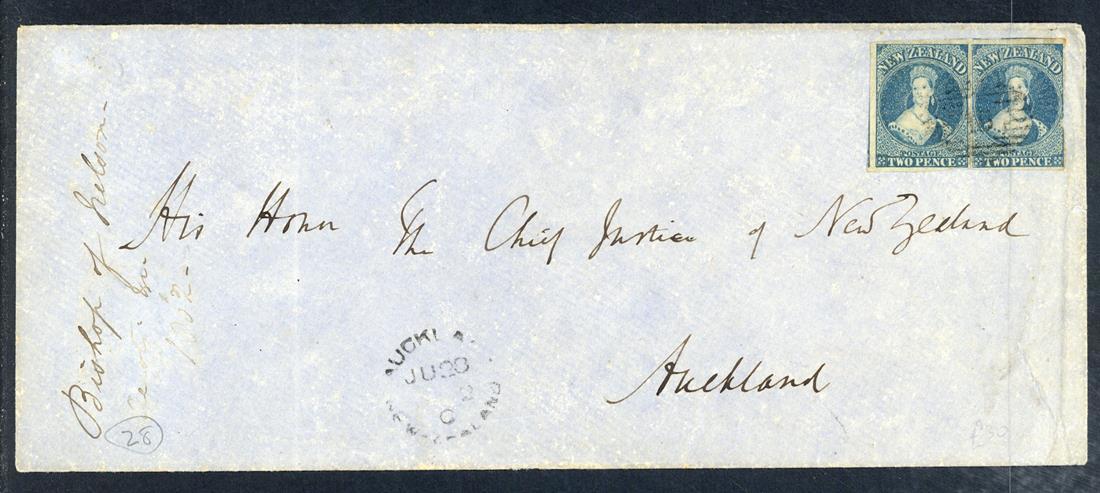 NEW ZEALAND NEW ZEALAND
POSTAGE POSTAGE
TWO PENCE TWO PENCE
His Honor The Chief Justice of New Zealand
Auckland
Bishop of Nelson
AUCKLA
JU 28
NEW-ZEALAND
28
£30